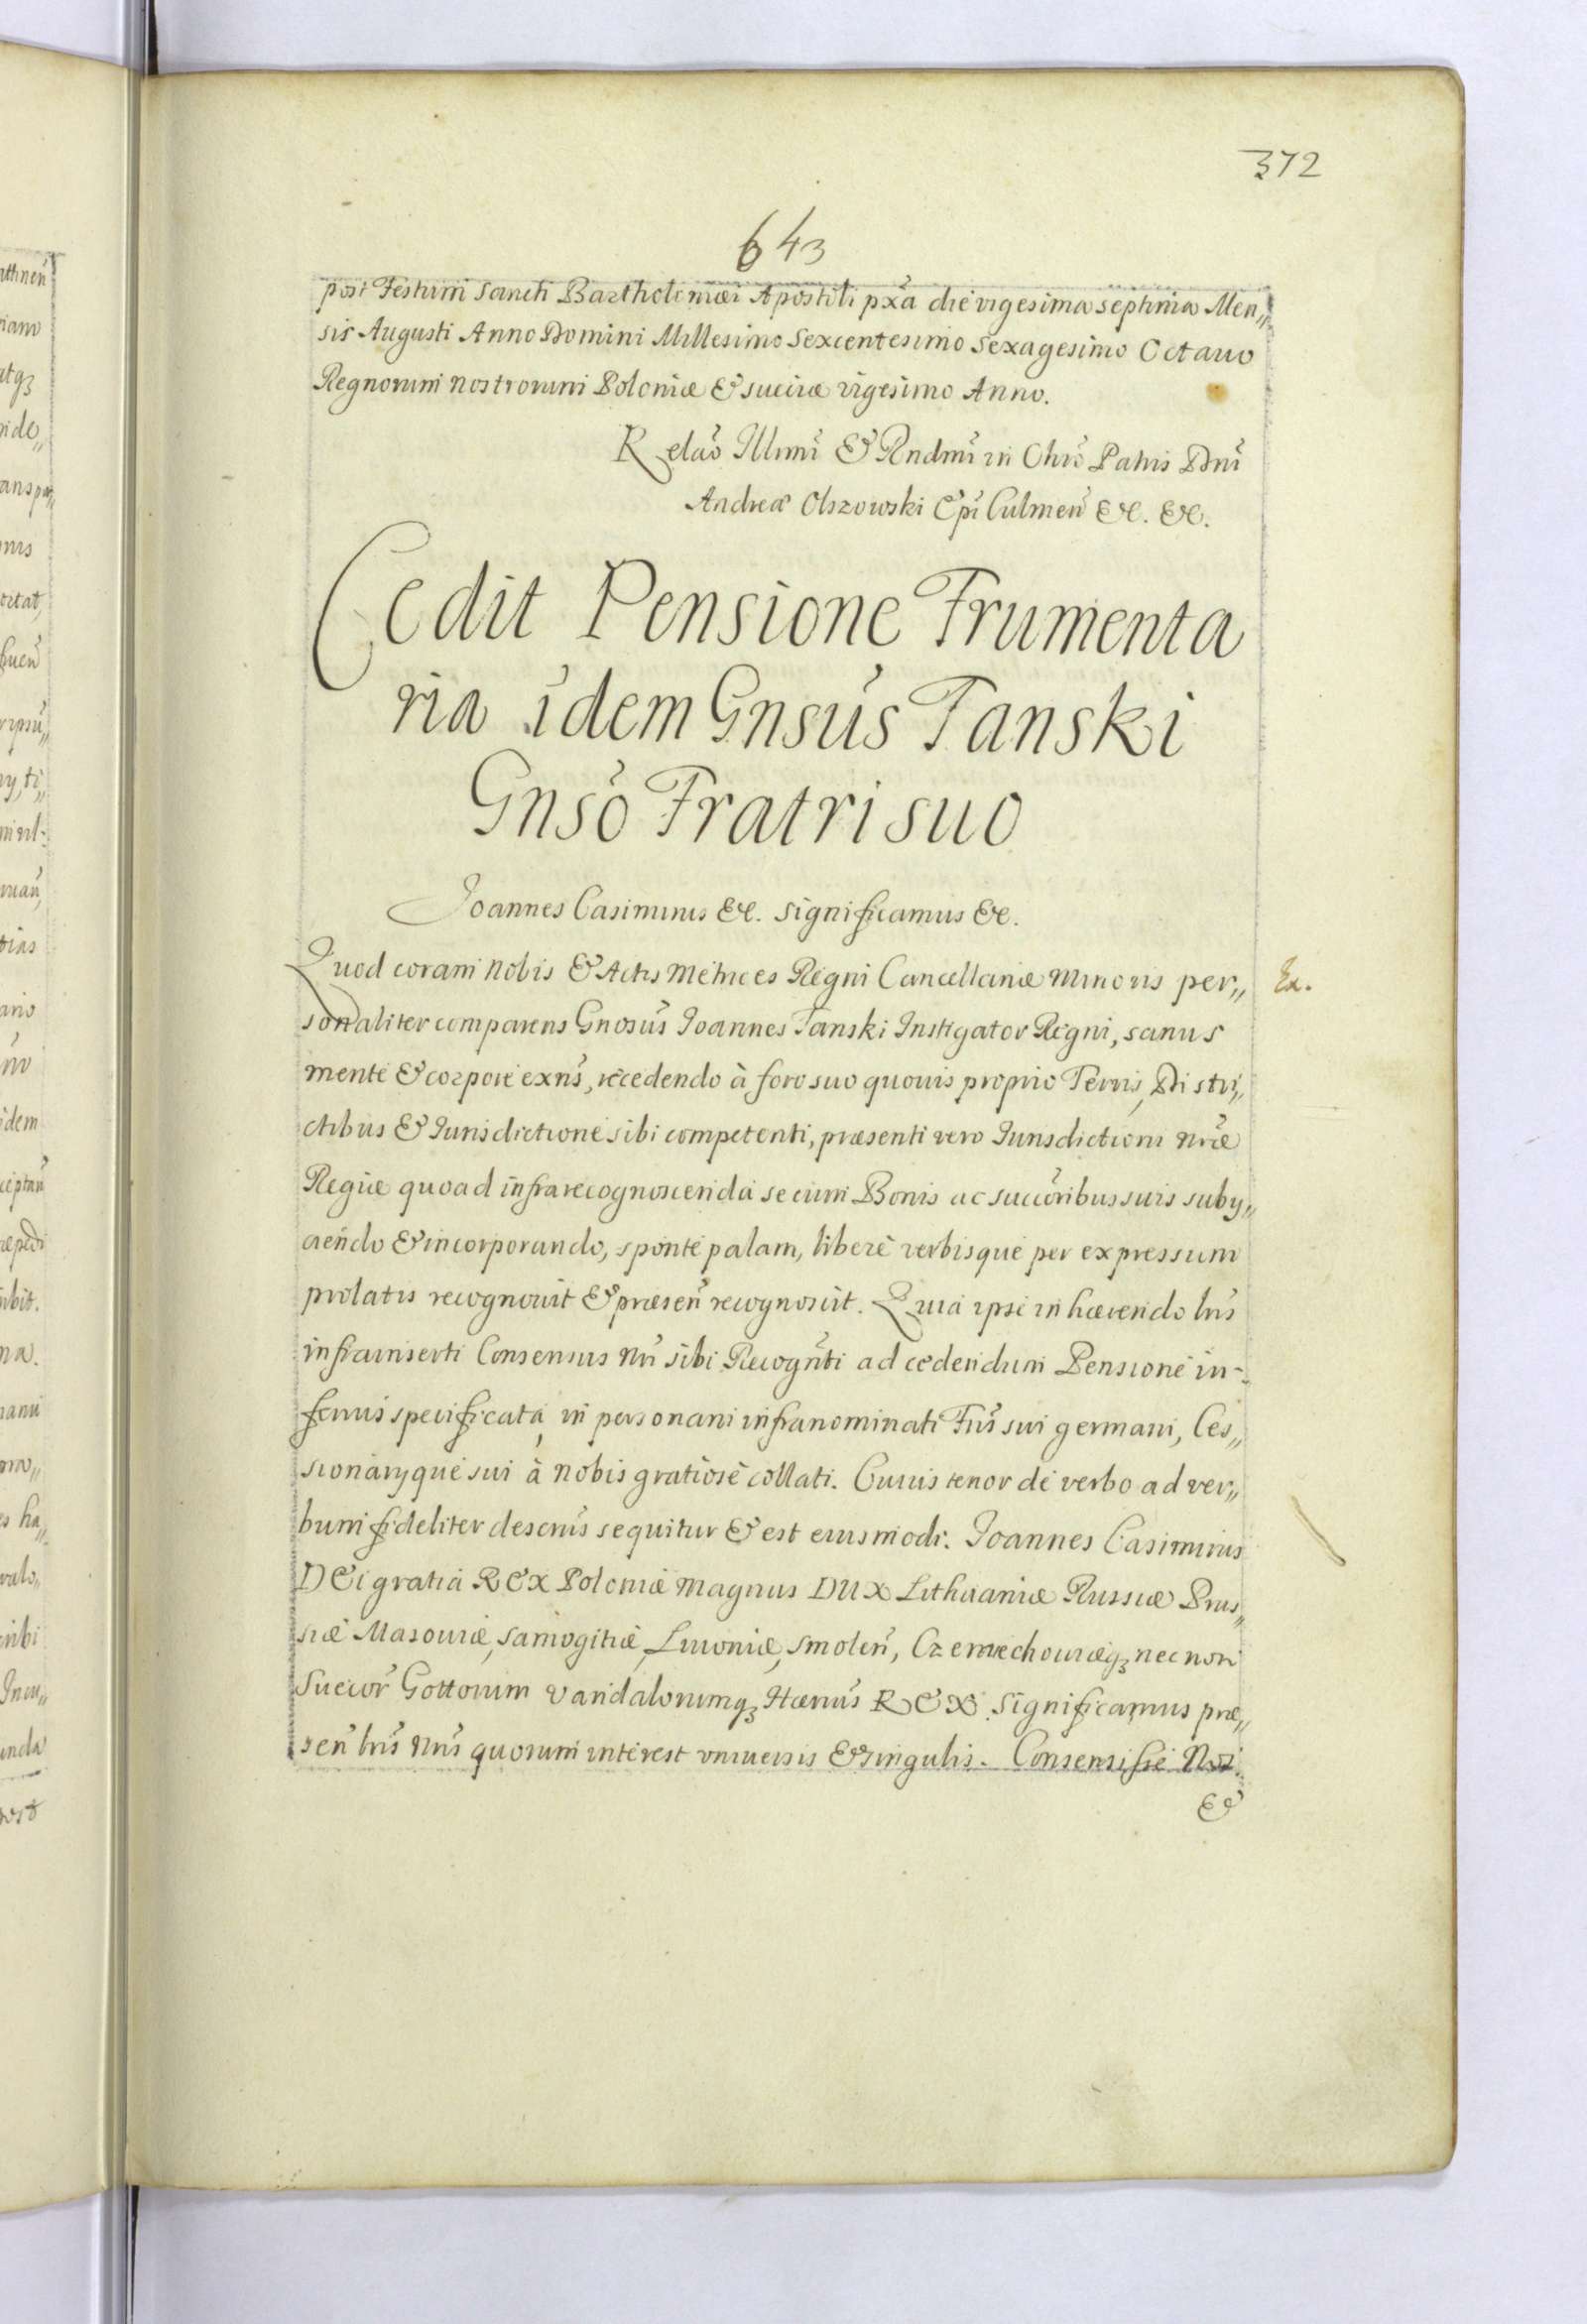 372
643
post Festum Sancti Bartholomæi Apostoli pxã die vigesima septima Men„
sis Augusti Anno Domini Millesimo Sexcentesimo Sexagesimo Octavo
Regnorum nostrorum Poloniæ & sueciæ vigesimo Anno.
Relaõ Illmi & Rndmi in Chro Patris Dni
Andreæ Olszowski Epi Culmeñ &c. &c.
Cedit Pensione Frumenta
ria idem Gnsus Tanski
Gnso Fratri suo
Joannes Casimirus &c. significamus &c.
Quod coram nobis & Actis Metrices Regni Cancellariæ minoris per„
Ex.
sonaliter comparens Gnosus Joannes Tanski Instigator Regni, sanus
mente & corpore exns, recedendo à foro suo quovis proprio Terris, Distri„
ctibus & Jurisdictione sibi competenti, præsenti vero Jurisdictioni nræ
Regiæ quoad infrarecognoscenda se cum Bonis ac succoribus suis suby„
ciendo & incorporando, sponte palam, liberè verbisque per expressum
prolatis recognovit & præsen recognoscit. Quia ipse in hærendo lris
infrainserti Consensus nri sibi Recognti ad cedendum Pensione in-
ferius specificata, in personam infranominati Fris sui germani, Ces„
sionaryque sui à nobis gratiosè collati. Cuius tenor de verbo ad ver„
bum fideliter descrius sequitur & est eiusmodi. Joannes Casimirus
DEi gratia REX Poloniæ magnus DUX Lithuaniæ Russiæ Prus„
siæ Masoviæ, samogitiæ, Livoniæ, smolen, Czerniechoviæq₃ nec non
Suecor Gottorum vandalorumq₃ Hærius REX. significamus præ„
sen lris nris quorum interest vniuersis & singulis. Consensisse Nos
&